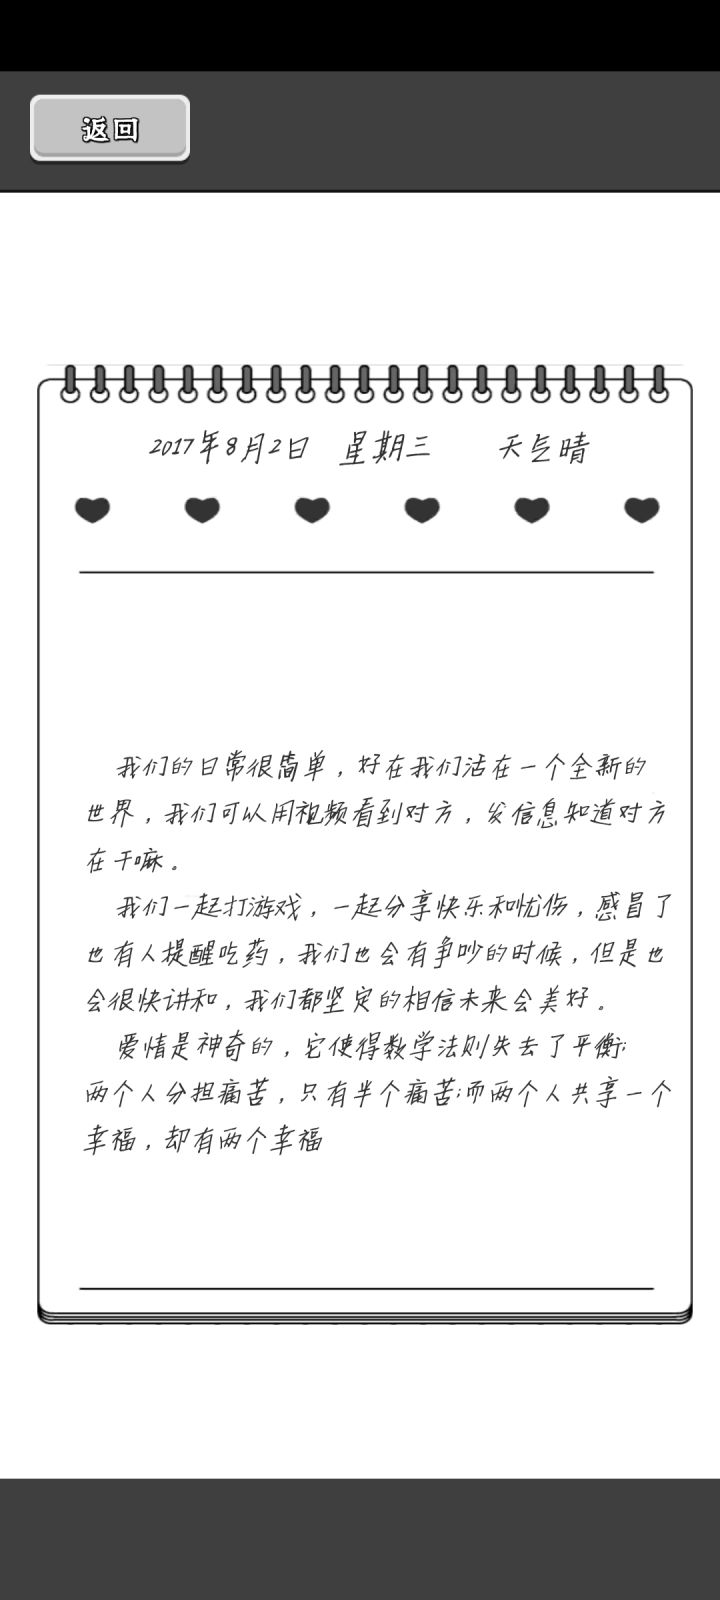 返回
2017年8月2日 星期三 天气晴
我们的日常很简单，好在我们活在一个全新的
世界，我们可以用视频看到对方，发信息知道对方
在干嘛。
我们一起打游戏，一起分享快乐和忧伤，感冒了
也有人提醒吃药，我们也会有争吵的时候，但是也
会很快讲和，我们都坚定的相信未来会美好。
爱情是神奇的，它使得数学法则失去了平衡;
两个人分担痛苦，只有半个痛苦;而两个人共享一个
幸福，却有两个幸福